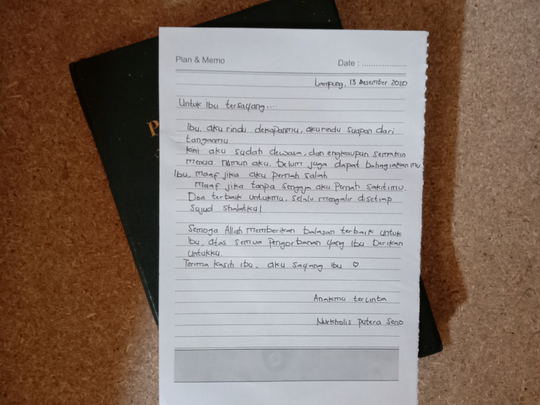 Plan & Memo
Date : ......................
Lampung, 13 Desember 2020
Untuk Ibu tersayang....
Ibu, aku rindu dekapanmu, aku rindu suapan dari
tanganmu
Kini aku sudah dewasa, dan engkaupun semakin
menua namun aku belum juga dapat bahagiakanmu
Ibu, maaf jika aku pernah salah
maaf jika tanpa sengaja aku pernah sakitimu.
Doa terbaik untukmu, selalu mengalir disetiap
sujud shalatku!
Semoga Allah memberikan balasan terbaik untuk
Ibu, atas semua pengorbanan yang Ibu berikan
Untukku.
Terima kasih ibu, aku sayang ibu ♡
Anakmu tercinta
Nurkholis Putera Seno